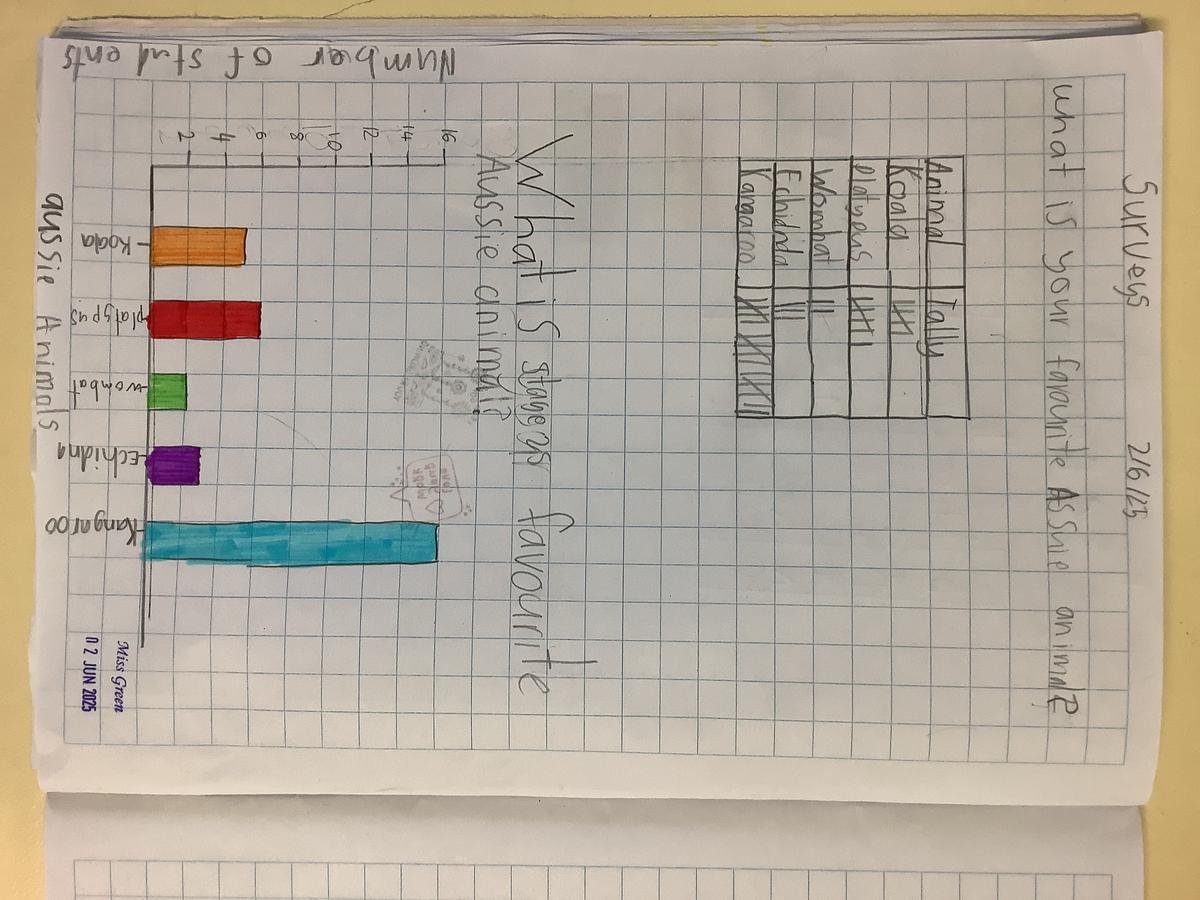 Surveys 2/6/25
What is your favourite Assie animal?
Animal Tally
Koala
Platypus
Wombat
Echidnda
Kangaroo
What is stage 3s favourite
Aussie animal?
Number of students
16
14
12
10
8
6
4
2
Koala
platypus
wombat
Echidna
Kangaroo
aussie Animals
Miss Green
02 JUN 2025